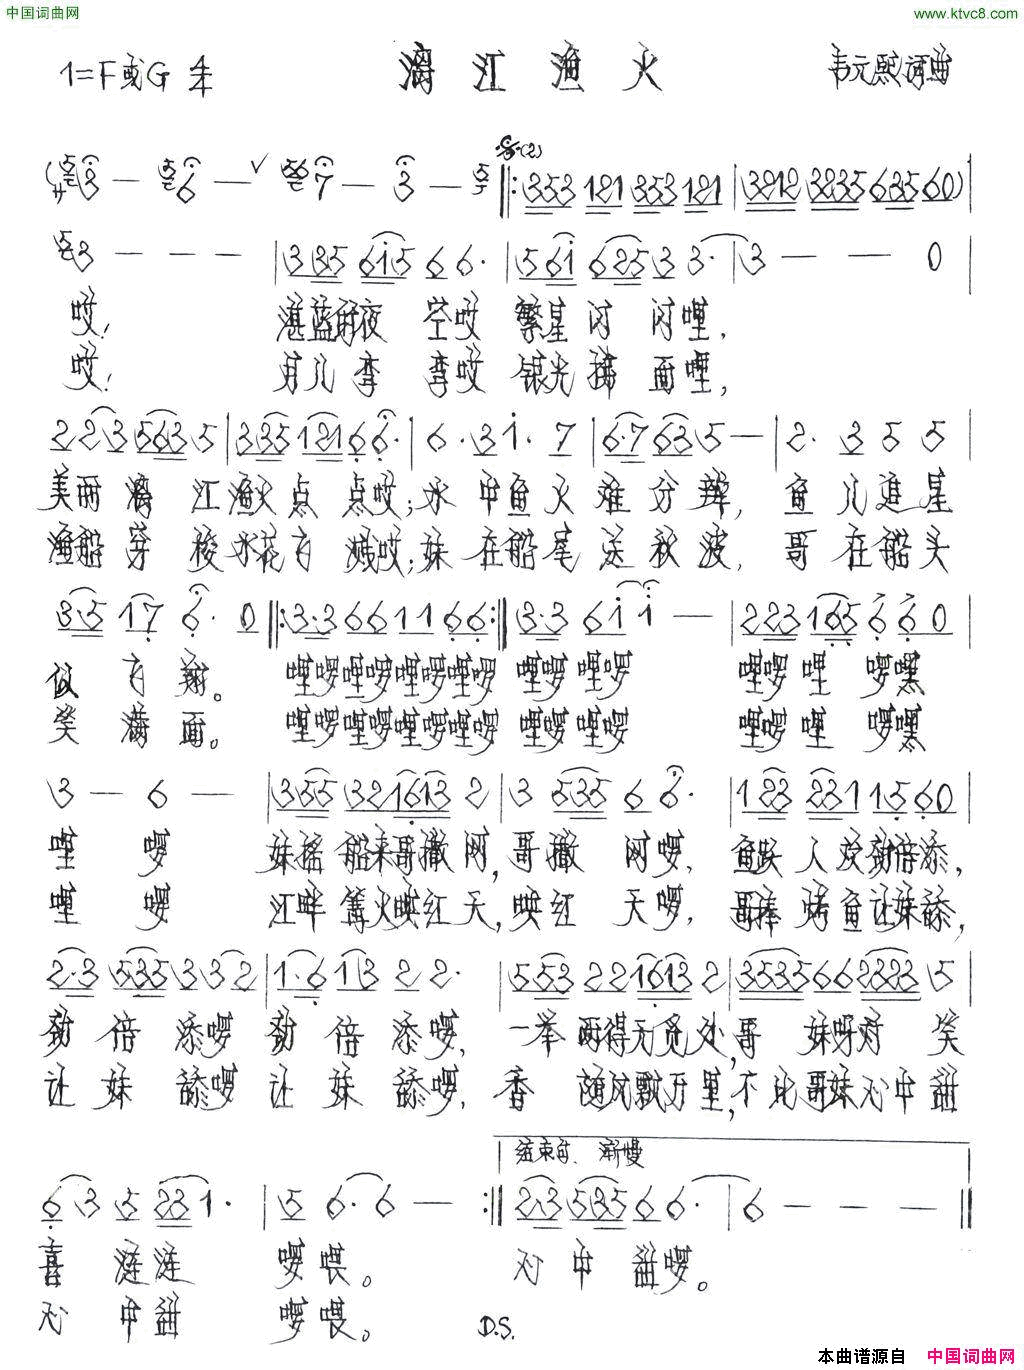 中国词曲网
www.ktvc8.com
漓江渔火
1=F或G
韦元熙词曲
哎! 湛蓝的夜空哎繁星闪闪哩,
哎! 月儿弯弯哎银光拂面哩,
美丽漓江渔火点点哎;水中鱼火难分辨,鱼儿追星
渔船穿梭水花飞溅哎;妹在船尾送秋波,哥在船头
似飞翔。哩啰哩啰哩啰哩啰哩啰哩啰哩啰哩啰嘿
笑满面。哩啰哩啰哩啰哩啰哩啰哩啰哩啰哩啰嘿
哩啰妹摇船来哥撒网,哥撒网啰,鱼跃人欢劲倍添,
哩啰江畔篝火映红天,映红天啰,哥捧烤鱼让妹舔,
劲倍添啰劲倍添啰,一举两得无觅处,哥妹呀对笑
让妹舔啰让妹舔啰,香随风飘万里,不比哥妹心中甜
结束句.渐慢
喜涟涟啰喂。心中甜啰。
心中甜啰喂。
D.S.
本曲谱源自 中国词曲网